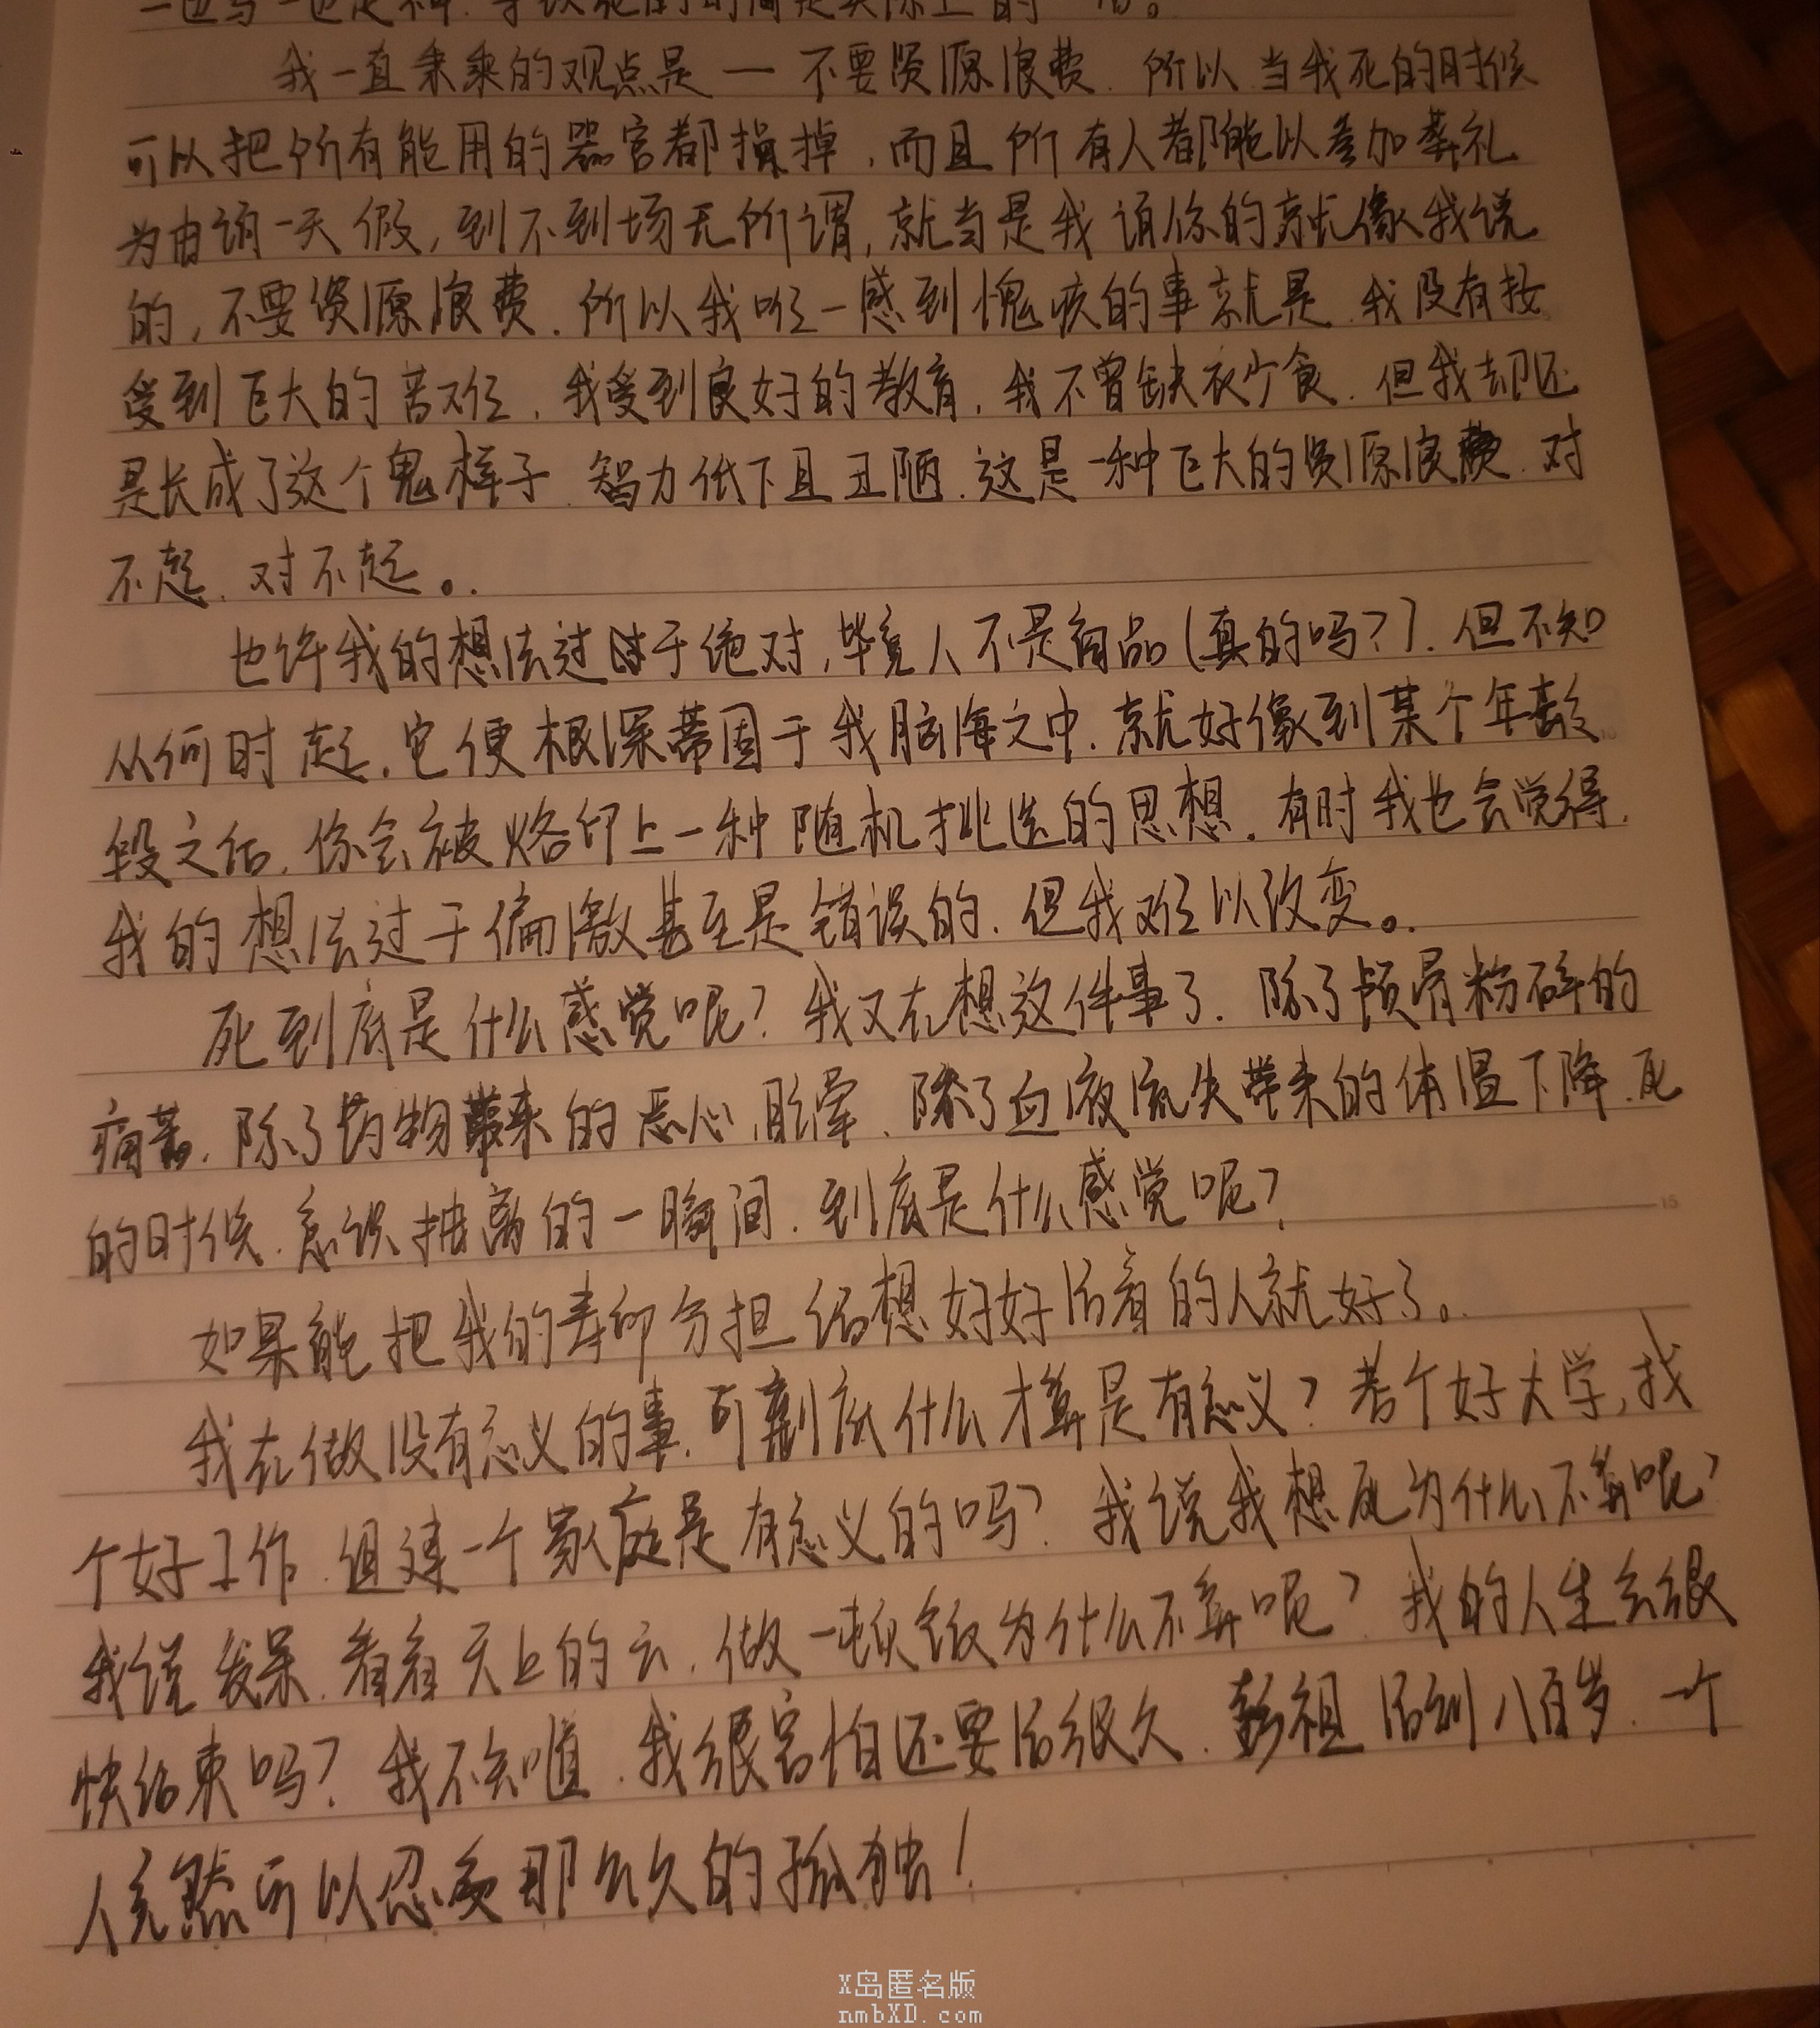 我一直秉乘的观点是一不要资源浪费.所以当我死的时候
可以把所有能用的器官都捐掉,而且所有人都能以参加葬礼
为由请一天假,到不到场无所谓,就当是我请你的就像我说
的,不要资源浪费.所以我唯一感到愧疚的事就是.我没有接
受到巨大的苦难,我受到良好的教育,我不曾缺衣少食.但我却还
是长成了这个鬼样子.智力低下且丑陋.这是一种巨大的资源浪费.对
不起.对不起。
也许我的想法过于绝对,毕竟人不是商品(真的吗?).但不知
从何时起,它便根深蒂固于我脑海之中.就好像到某个年龄
段之后,你会被烙印上一种随机挑选的思想.有时我也会觉得.
我的想法过于偏激甚至是错误的.但我难以改变。
死到底是什么感觉呢?我又在想这件事了.除了颅骨粉碎的
痛苦.除了药物带来的恶心,眩晕.除了血液流失带来的体温下降.死
的时候.意识抽离的一瞬间.到底是什么感觉呢?
如果能把我的寿命分担给想好好活着的人就好了。
我在做没有意义的事.可到底什么才算是有意义?考个好大学,找
个好工作.组建一个家庭是有意义的吗?我说我想死为什么不算呢?
我说发呆.看看天上的云.做一顿饭为什么不算呢?我的人生会很
快结束吗?我不知道.我很害怕还要活很久.彭祖活到八百岁.一个
人竟然可以忍受那么久的孤独!
X岛匿名版
nmbXD.com